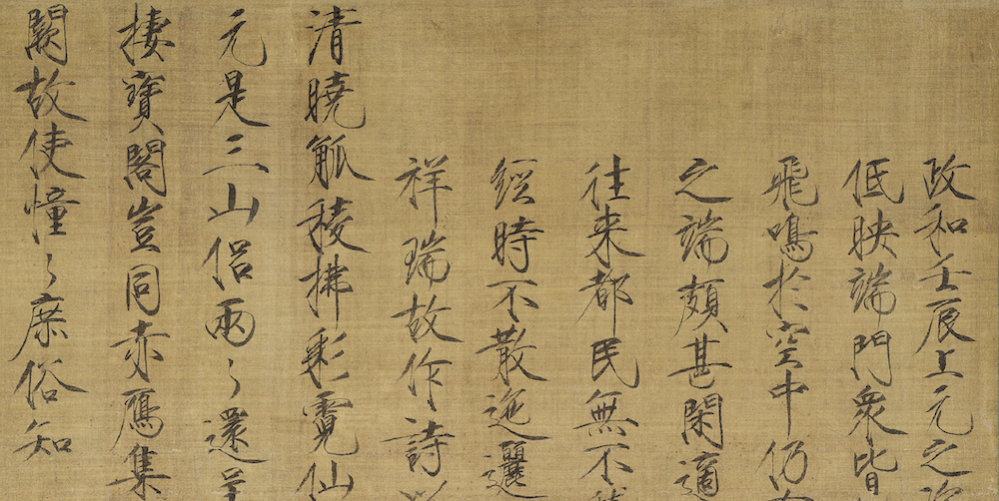 政和壬辰上元之
低映端門衆皆
飛鳴於空中仍
之端頗甚閑適
往来都民無不
經時不散迤邐
祥瑞故作詩
清曉觚稜拂彩霓仙
元是三山侶兩〻還呈
棲寶閣豈同赤鴈集
闕故使憧〻庶俗知